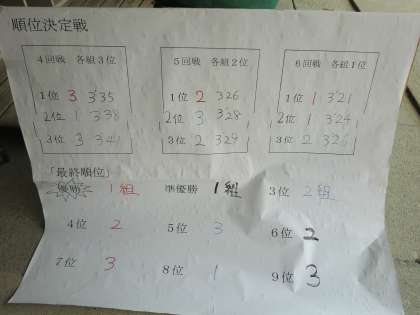 順位決定戦
4回戦 各組3位 5回戦 各組2位 6回戦 各組1位
1位 3 3'35 1位 2 3'26 1位 1 3'21
2位 1 3'38 2位 3 3'28 2位 1 3'24
3位 3 3'41 3位 2 3'29 3位 2 3'26
「最終順位」
優勝 1組 準優勝 1組 3位 2組
4位 2 5位 3 6位 2
7位 3 8位 1 9位 3